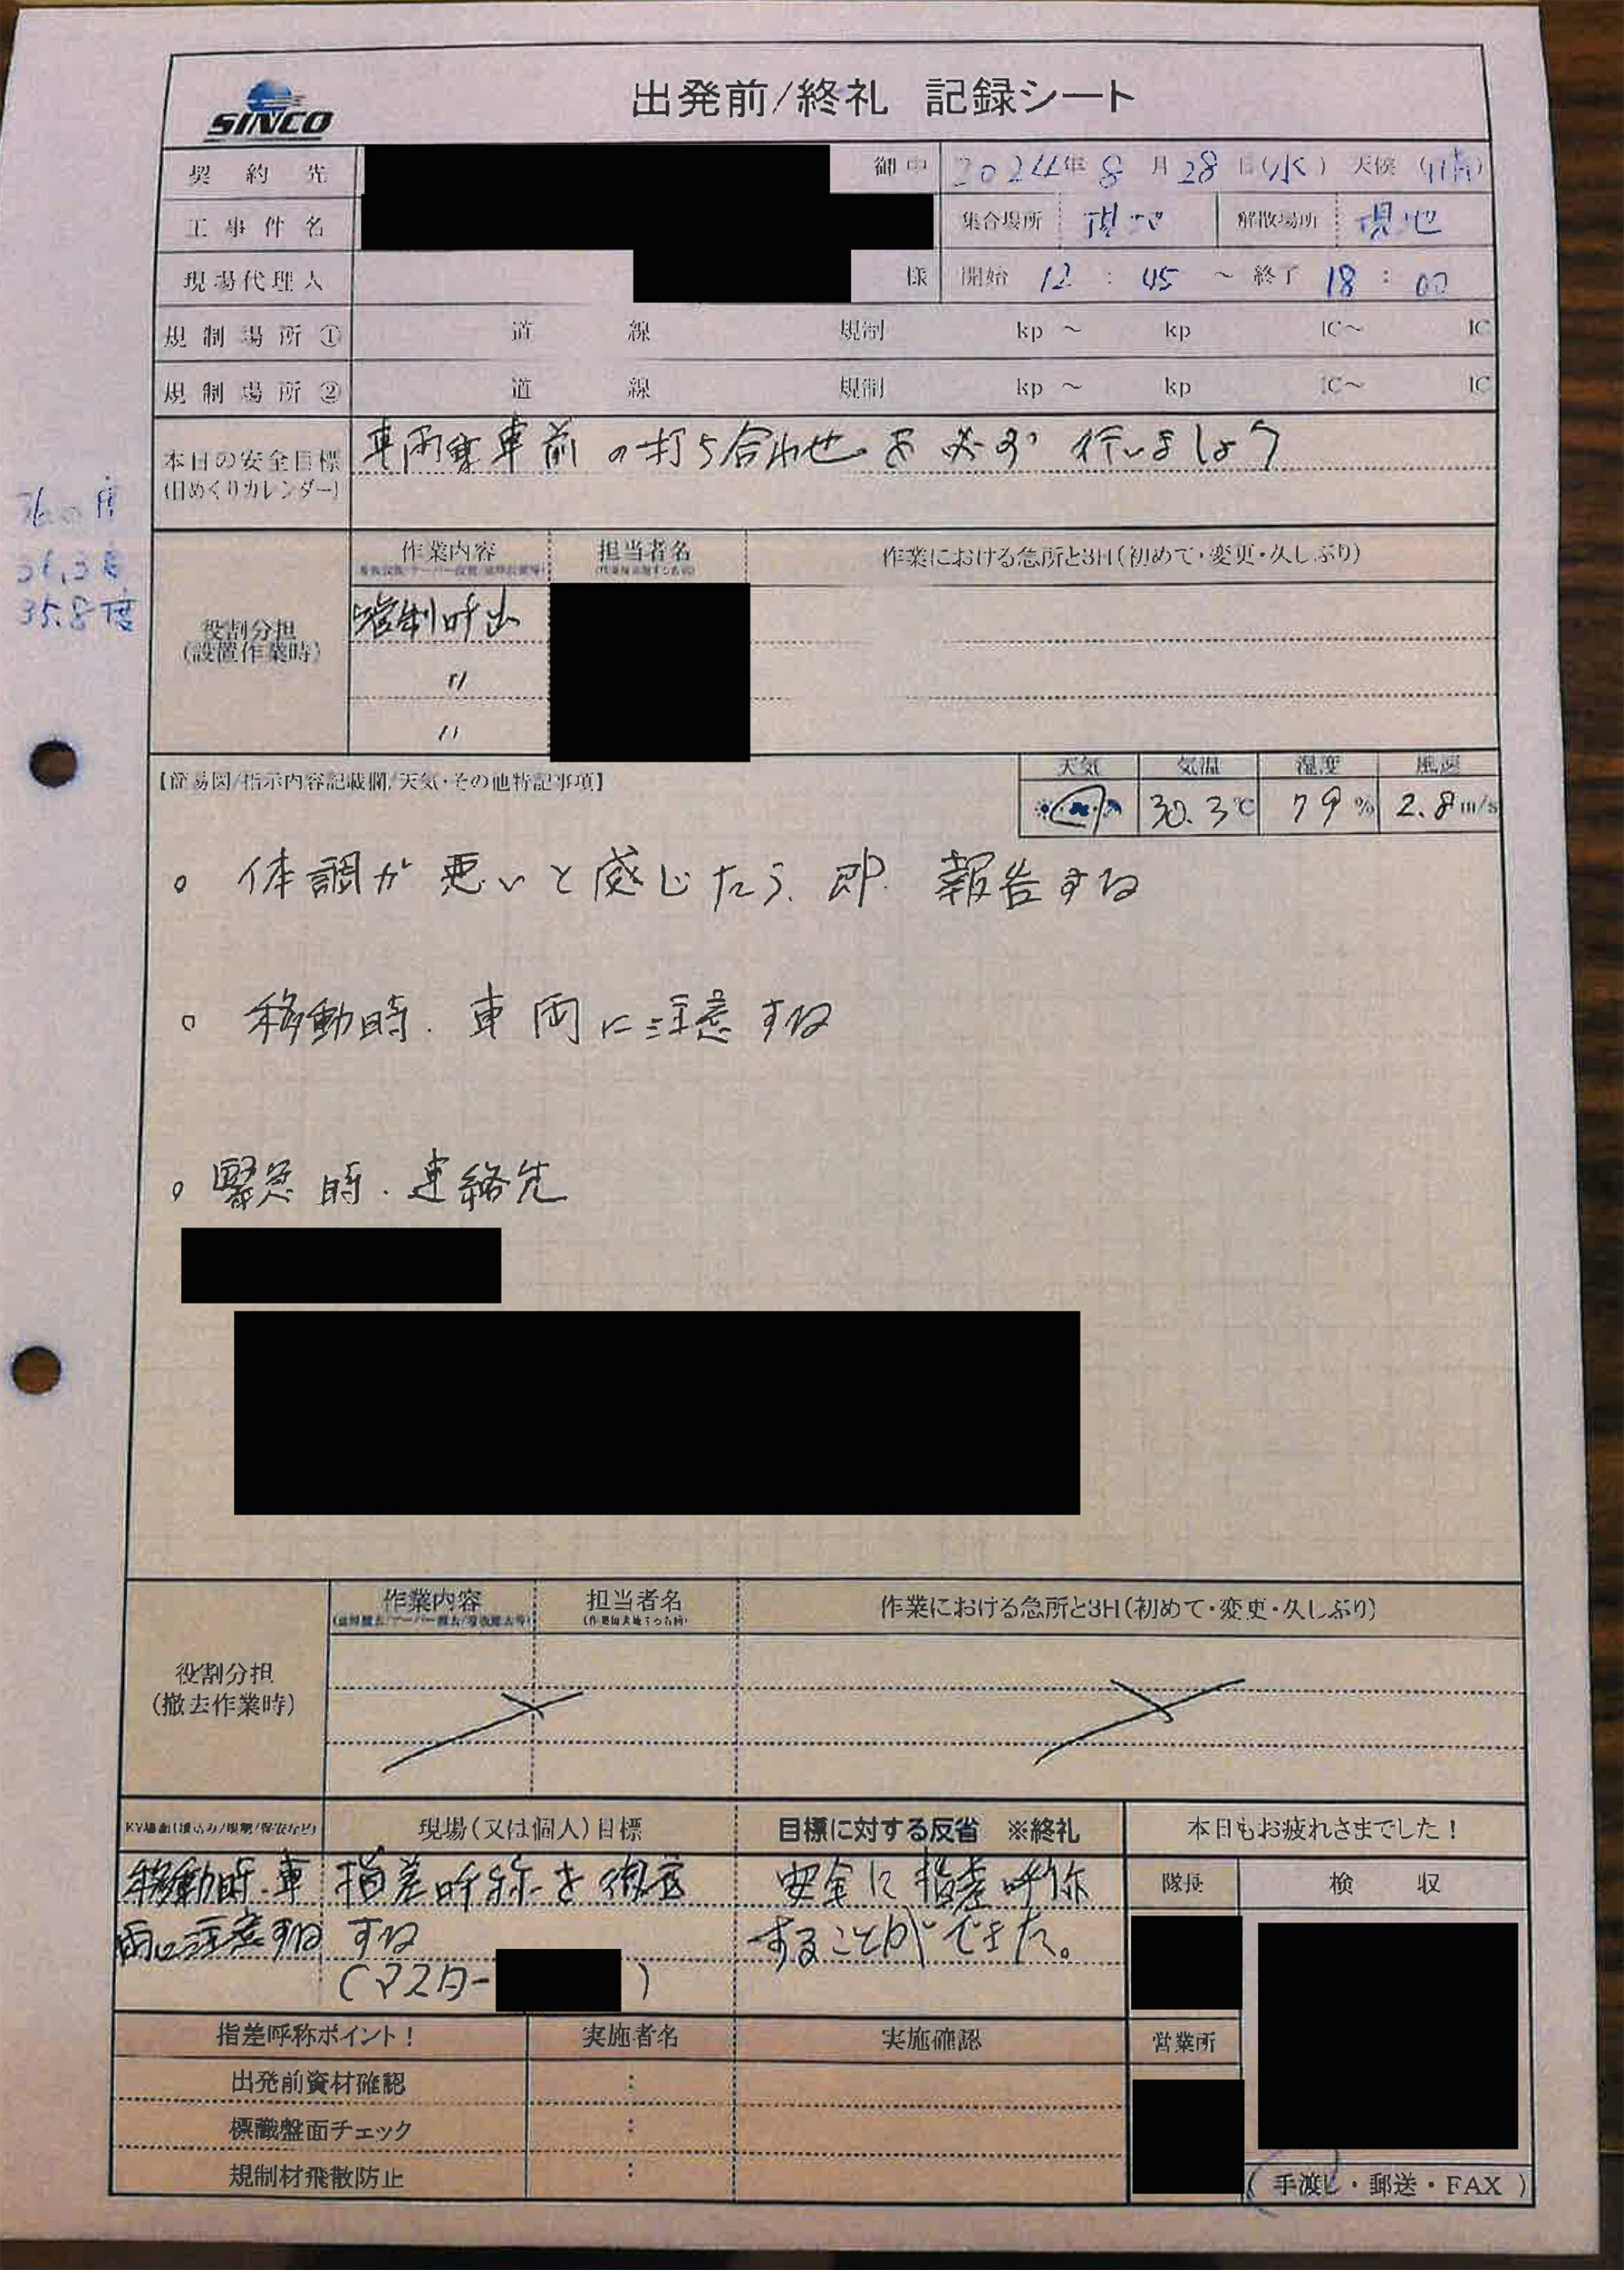 SINCO
出発前/終礼 記録シート
契約先 御中 2024年 8月 28日(水) 天候 (晴)
工事件名 集合場所 現地 解散場所 現地
現場代理人 様 開始 12:45 ～ 終了 18:00
規制場所① 道 線 規制 kp ～ kp IC～ IC
規制場所② 道 線 規制 kp ～ kp IC～ IC
本日の安全目標 車両乗車前の打ち合わせを必ず行いましょう
(日めくりカレンダー)
35.8度
作業内容 担当者名 作業における急所と3H(初めて・変更・久しぶり)
役割分担
(設置作業時)
〃
〃
【簡易図/指示内容記載欄/天気・その他特記事項】
天気 気温 湿度 風速
30.3℃ 79% 2.8m/s
。体調が悪いと感じたら、即、報告する
。移動時、車両に注意する
。緊急時、連絡先
作業内容 担当者名 作業における急所と3H(初めて・変更・久しぶり)
役割分担
(撤去作業時)
現場(又は個人)目標 目標に対する反省 ※終礼 本日もお疲れさまでした！
移動時、車 指差呼称を徹底 安全に指差呼称 隊長 検収
両に注意する する することができた。
(マスター )
指差呼称ポイント！ 実施者名 実施確認 営業所
出発前資材確認 :
標識盤面チェック :
規制材飛散防止 :
(手渡し・郵送・FAX)